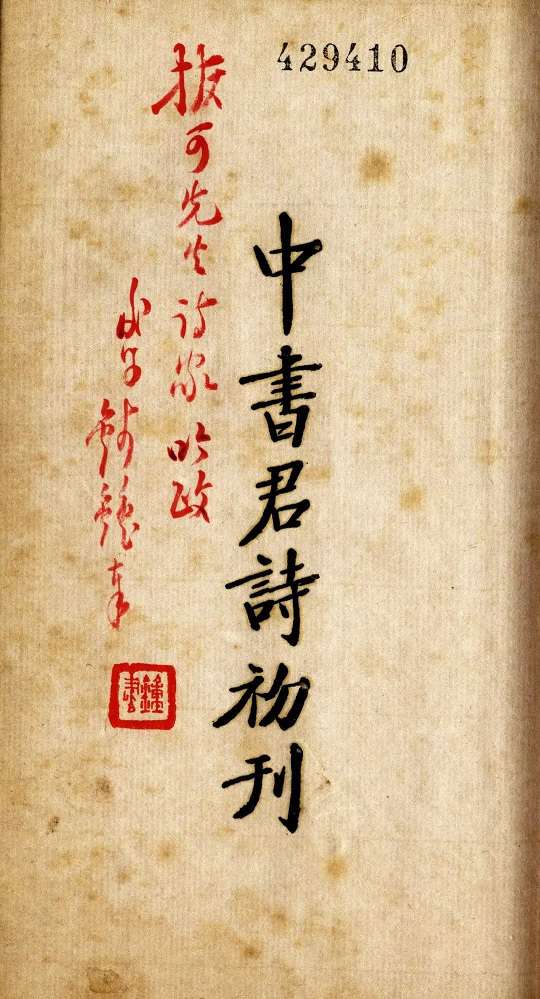 429410
中書君詩初刊
拔可先生詩家吟政
錢鍾書奉
鍾書